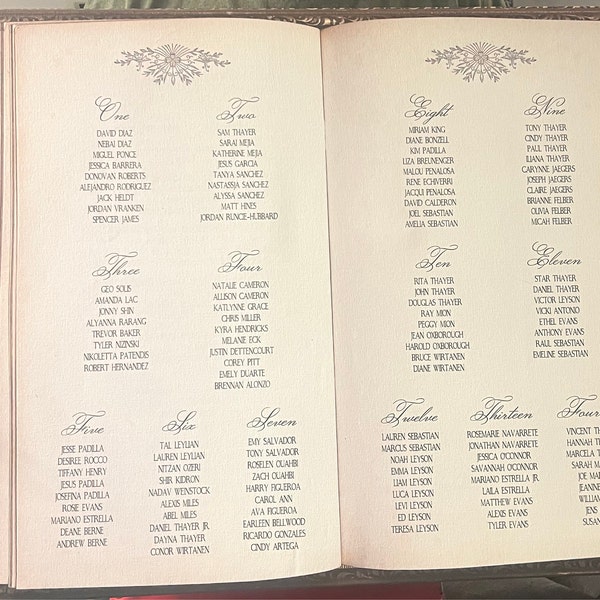 One
DAVID DIAZ
NEBAI DIAZ
MIGUEL PONCE
JESSICA BARRERA
DONOVAN ROBERTS
ALEJANDRO RODRIGUEZ
JACK HELDT
JORDAN VRANKEN
SPENCER JAMES
Two
SAM THAYER
SARAI MEJIA
KATHERINE MEJIA
JESUS GARCIA
TANYA SANCHEZ
NASTASSJA SANCHEZ
ALYSSA SANCHEZ
MATT HINES
JORDAN RUNCIE-HUBBARD
Three
GEO SOLIS
AMANDA LAC
JONNY SHIN
ALYANNA RARANG
TREVOR BAKER
TYLER NIZINSKI
NIKOLETTA PATENDIS
ROBERT HERNANDEZ
Four
NATALIE CAMERON
ALLISON CAMERON
KATLYNNE GRACE
CHRIS MILLER
KYRA HENDRICKS
MELANIE ECK
JUSTIN DETTENCOURT
COREY PITT
EMELY DUARTE
BRENNAN ALONZO
Five
JESSE PADILLA
DESIREE ROCCO
TIFFANY HENRY
JESUS PADILLA
JOSEFINA PADILLA
ROSIE EVANS
MARIANO ESTRELLA
DEANE BERNE
ANDREW BERNE
Six
TAL LEYLIAN
LAUREN LEYLIAN
NITZAN OZERI
SHIR KIDRON
NADAV WEINSTOCK
ALEXIS MILES
ABEL MILES
DANIEL THAYER JR.
DAYNA THAYER
CONOR WIRTANEN
Seven
EMY SALVADOR
TONY SALVADOR
ROSELEN OUAHBI
ZACH OUAHBI
HARRY FIGUEROA
CAROL ANN
AVA FIGUEROA
EARLEEN BELLWOOD
RICARDO GONZALES
CINDY ARTEGA
Eight
MIRIAM KING
DIANE BONZELL
KIM PADILLA
LIZA BREUNENGER
MALOU PENALOSA
RENE ECHIVERRI
JACQUI PENALOSA
DAVID CALDERON
JOEL SEBASTIAN
AMELIA SEBASTIAN
Nine
TONY THAYER
CINDY THAYER
PAUL THAYER
ILIANA THAYER
CARYNNE JAEGERS
JOSEPH JAEGERS
CLAIRE JAEGERS
BRIANNE FELBER
OLIVIA FELBER
MICAH FELBER
Ten
RITA THAYER
JOHN THAYER
DOUGLAS THAYER
RAY MION
PEGGY MION
JEAN OXBOROUGH
HAROLD OXBOROUGH
BRUCE WIRTANEN
DIANE WIRTANEN
Eleven
STAR THAYER
DANIEL THAYER
VICTOR LEYSON
VICKI ANTONIO
ETHEL EVANS
ANTHONY EVANS
RAUL SEBASTIAN
EMELINE SEBASTIAN
Twelve
LAUREN SEBASTIAN
MARCUS SEBASTIAN
NOAH LEYSON
EMMA LEYSON
LIAM LEYSON
LUCA LEYSON
LEVI LEYSON
ED LEYSON
TERESA LEYSON
Thirteen
ROSEMARIE NAVARRETE
JONATHAN NAVARRETE
JESSICA OCONNOR
SAVANNAH OCONNOR
MARIANO ESTRELLA JR
LAILA ESTRELLA
MATTHEW EVANS
ALEXIS EVANS
TYLER EVANS
Four
VINCENT TH
HANNAH T
MARCELA T
SARAH M
JOE MA
JEANNE
WILLIAM
JENS
SUSAN